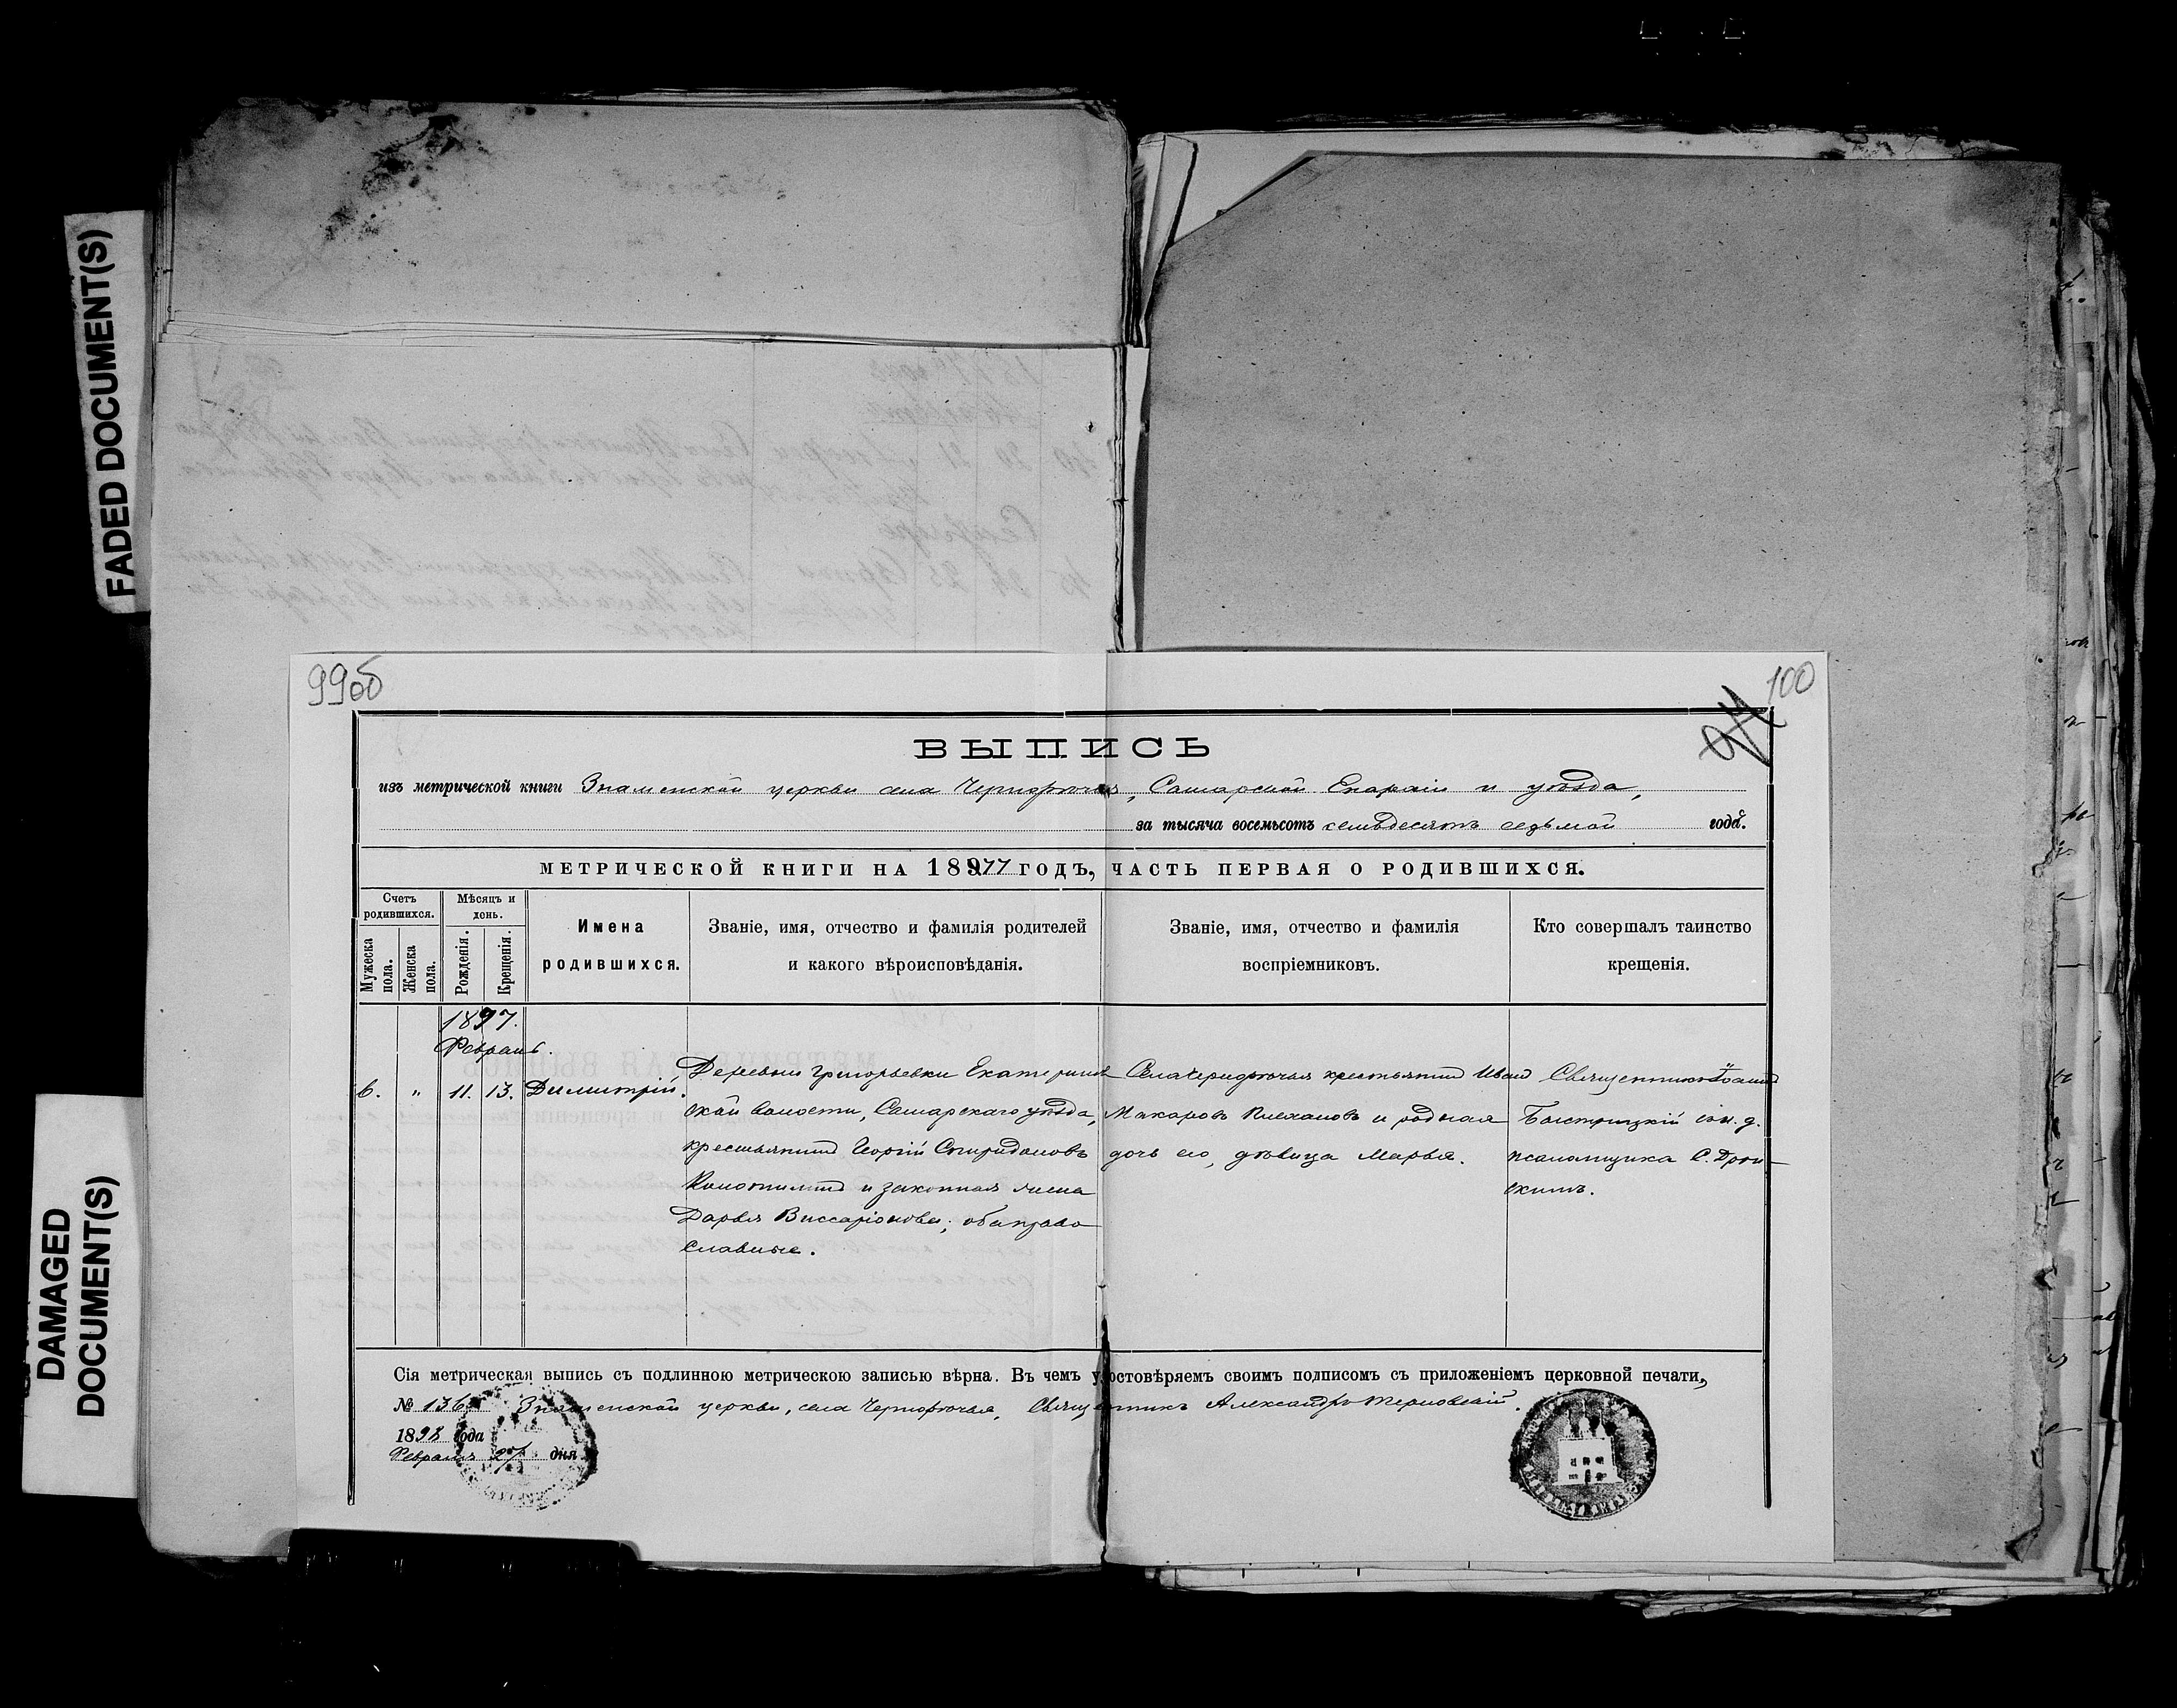 FADED DOCUMENT(S)
DAMAGED
DOCUMENT(S)
99об
100
ВЫПИСЬ
изъ метрической книги Знаменской церкви села Чернорѣчья, Самарской Епархіи и уѣзда,
за тысяча восемьсотъ семьдесятъ седьмой года.
МЕТРИЧЕСКОЙ КНИГИ НА 1877 ГОДЪ, ЧАСТЬ ПЕРВАЯ О РОДИВШИХСЯ.
Счетъ родившихся.
Мужеска пола.
Женска пола.
Мѣсяцъ и день.
Рожденія.
Крещенія.
Имена
родившихся.
Званіе, имя, отчество и фамилія родителей
и какого вѣроисповѣданія.
Званіе, имя, отчество и фамилія
воспріемниковъ.
Кто совершалъ таинство
крещенія.
Февраль.
6. " 11. 13. Димитрій.
Деревни Григорьевки Екатеринов
ской волости, Самарскаго уѣзда,
крестьянинъ Георгій Спиридоновъ
и законная жена
Дарья Виссаріонова; оба право
славные.
Села Чернорѣчья крестьянинъ Иванъ
Макаровъ Плехановъ и родная
дочь его, дѣвица Марья.
Священникъ Іоаннъ
Быстрицкій
псаломщика С.
Сія метрическая выпись съ подлинною метрическою записью вѣрна. Въ чемъ удостовѣряемъ своимъ подписомъ съ приложеніемъ церковной печати,
№ Знаменской церкви, села Чернорѣчья, Священникъ Александръ Терновскій.
1898 года
Февраля дня